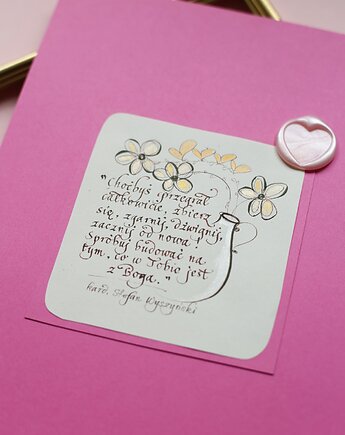 "Choćbyś przegrał
całkowicie, zbierz
się, zgarnij, dźwignij,
zacznij od nowa!
Spróbuj budować na
tym, co w Tobie jest
z Boga."
kard. Stefan Wyszyński